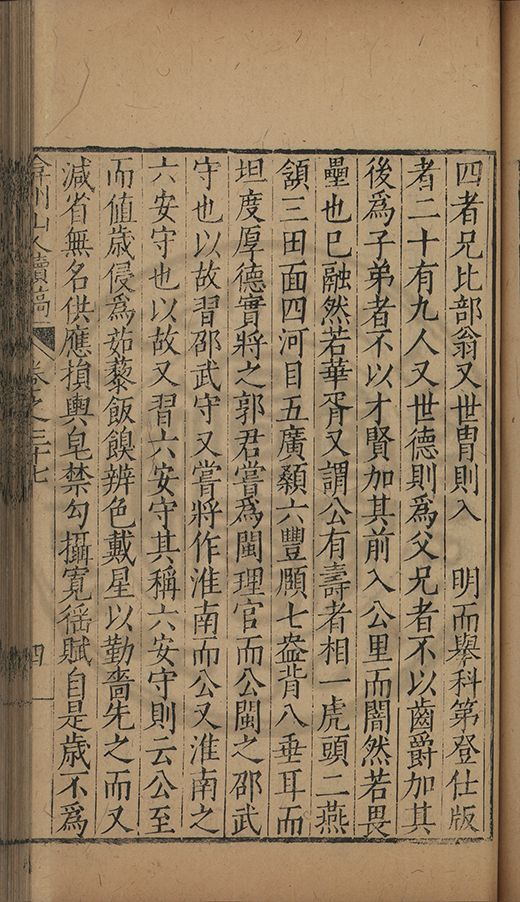 四者兄比部翁又世冑則入　明而舉科第登仕版
者二十有九人又世德則爲父兄者不以齒爵加其
後爲子弟者不以才賢加其前入公里而闇然若畏
壘也已融然若華胥又謂公有壽者相一虎頭二燕
頷三田面四河目五廣顙六豐頤七盎背八垂耳而
坦度厚德實將之郭君嘗爲閩理官而公閩之邵武
守也以故習邵武守又嘗將作淮南而公又淮南之
六安守也以故又習六安守其稱六安守則云公至
而値歲侵爲茹藜飯餿辨色戴星以勤嗇先之而又
減省無名供應損輿皂禁勾攝寬徭賦自是歲不爲
弇州山人續稿
卷之三十七
四